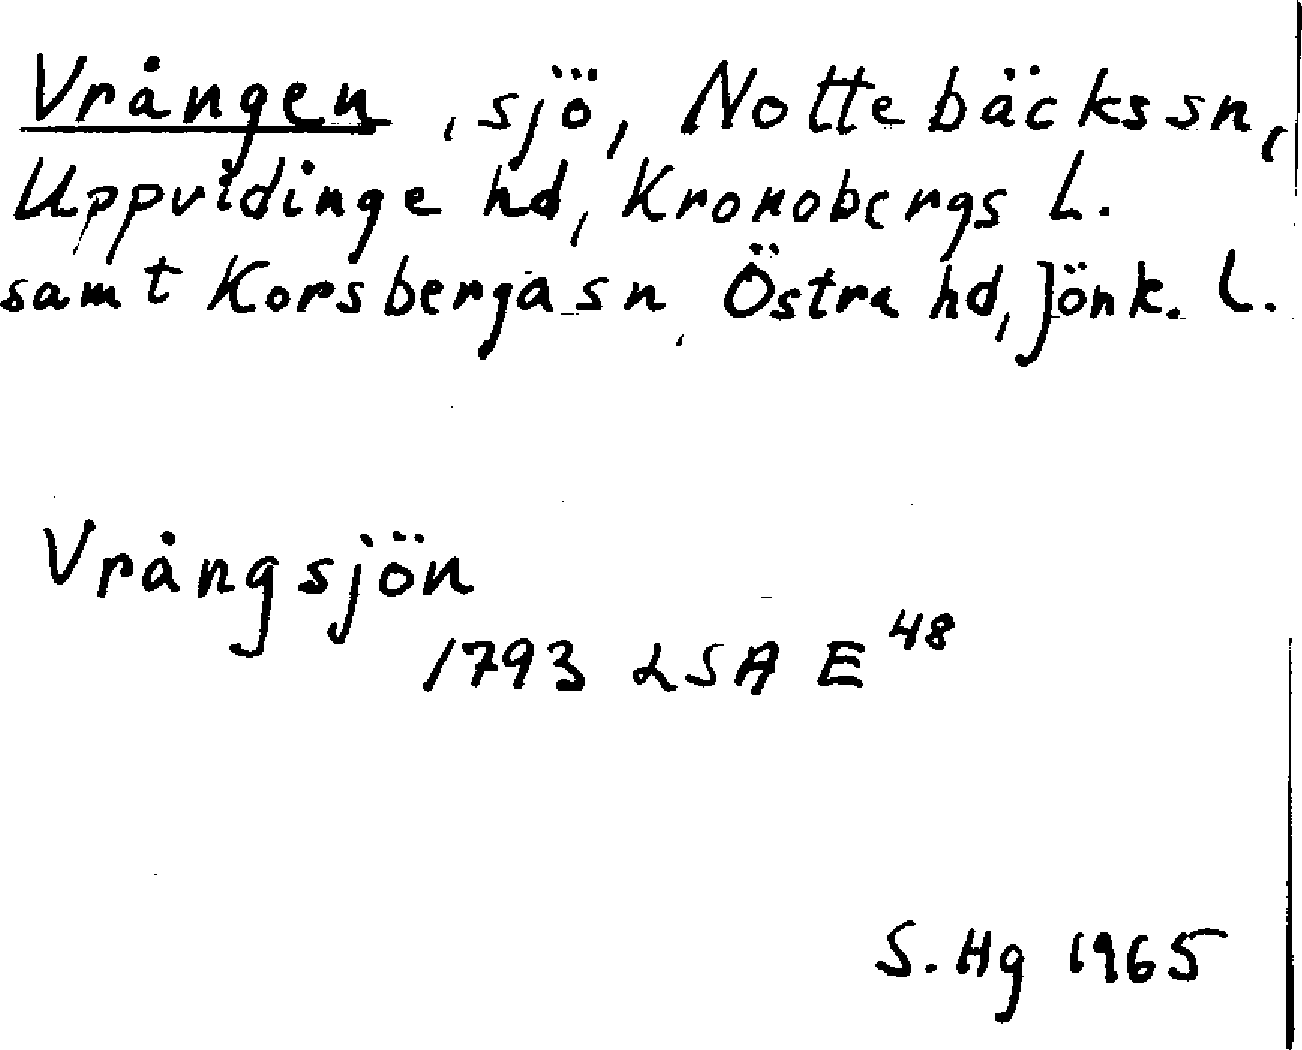 Vrången, sjö, Nottebäcks sn,
Uppvidinge hd, Kronobergs L.
samt Korsberga sn, Östra hd, Jönk. L.
Vrångsjön
1793 LSA E 48
S. Hg 1965